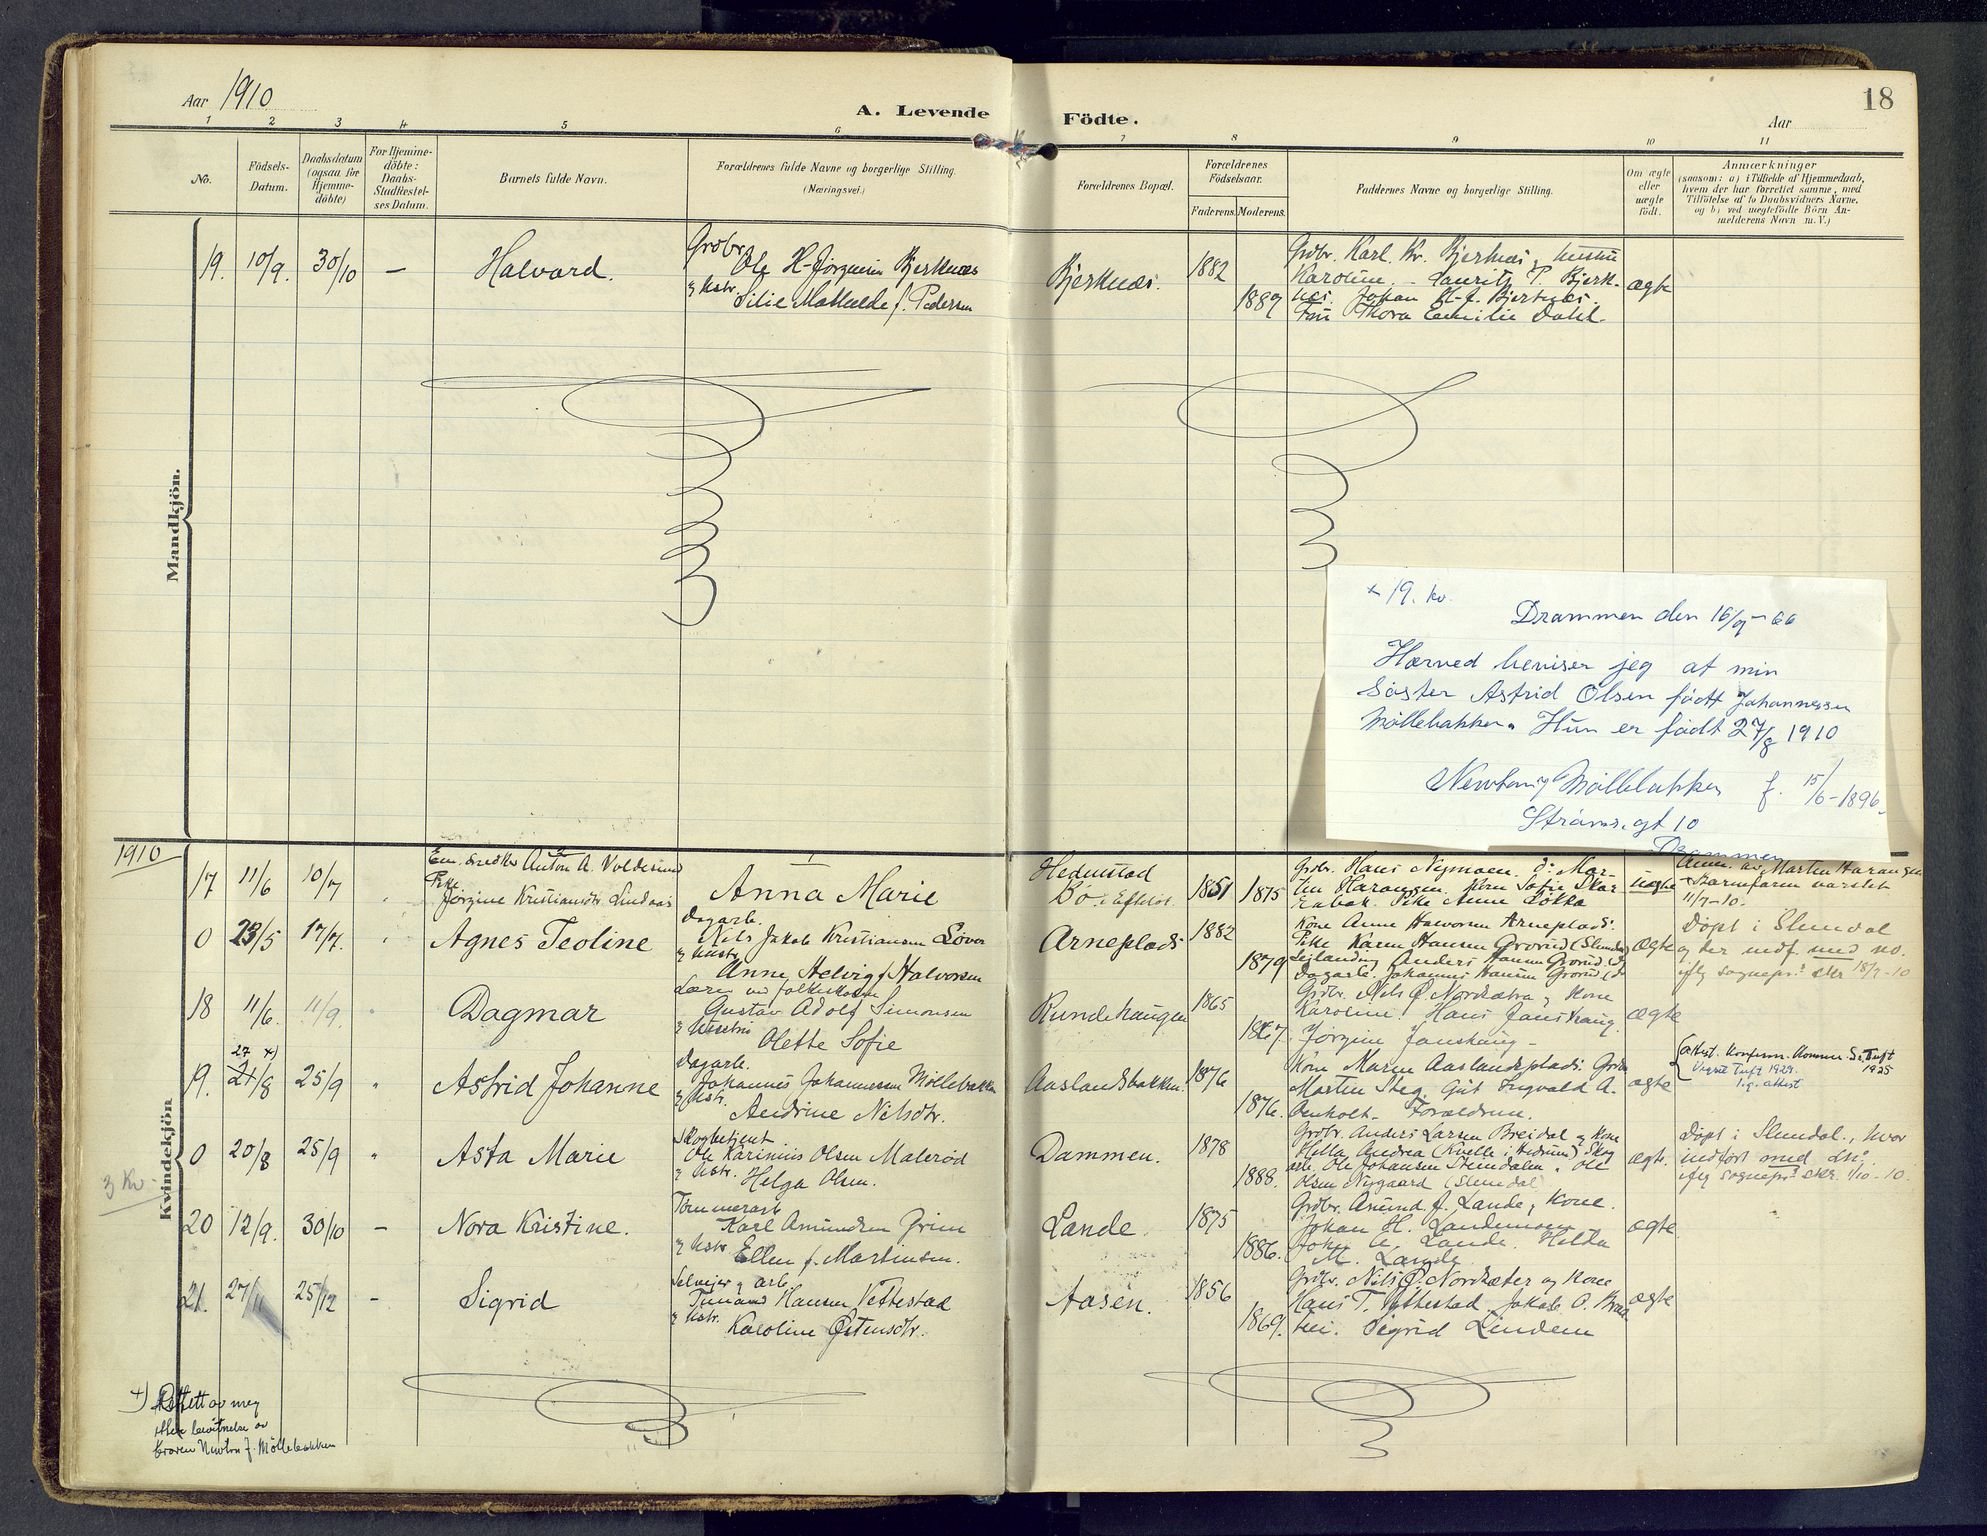 Aar 1910
A. Levende
Födte.
18
Aar
1 2 3 4 5 6 7 8 9 10 11
No.
Födsels-
Datum.
Daabsdatum
(ogsaa for
Hjemme-
döbte)
For Hjemme-
döbte:
Daabs-
Stadfæstel-
ses Datum.
Barnets fulde Navn.
Forældrenes fulde Navne og borgerlige Stilling.
(Næringsvei.)
Forældrenes Bopæl.
Forældrenes
Födselsaar.
Faderens. Moderens.
Faddernes Navne og borgerlige Stilling.
Om ægte
eller
uægte
födt.
Anmærkninger
(saasom: a) i Tilfælde af Hjemmedaab,
hvem der har forrettet samme, med
Tilföielse af to Daabsvidners Navne.
og b) ved uægtefödte Börn An-
melderens Navn m. V.)
Mandkjön.
19. 10/9. 30/10 — Halvard.
Grdbr.
Ole H. Jørgensen Bjerknæs
& Hstr.
Silie Mathilde f. Pedersen
Bjerknæs.
1882
1889
Grdbr. Karl Kr. Bjerknæs, hustru
Karoline, Lauritz P. Bjerk-
næs. Johan H. J. Bjerknæs.
Frk Thora Emilie Dahl.
ægte
+ 19. kv.
Drammen den 16/9-66
Hærved beviser jeg at min
Søster Astrid Olsen født Johannessen
Møllebakken. Hun er født 27/8 1910
Newton J Møllebakken f. 15/6-1896.
Strøms.gt 10
Drammen
1910
Kvindekjön
17 11/6 10/7
Em. Snedker Anton A. Voldesund
Pike
Jørgine Kristiansdtr Lindaas
Anna Marie
Hedenstad
Bø i Efteløt
1851 1875
Grdbr. Hans Nymoen. d: Mar-
tin Harangen. Kone Sofie Skar
Pike Anne Løkka
uægte
Anm. av Marten Harangen
Barnefaren varslet
11/7-10.
0 23/5 17/7. Agnes Teoline
Dagarb.
Nils Jakob Kristiansen Løver
& Hustr
Anne Helvig f Halvorsen
Arneplads
1882
1879
Kone Anne Halvorsen Arneplads.
Pike Karen Hansen Grorud (Slemdal)
Anders Hansen Grorud (d
Dagarb. Johannes Hansen Grorud (d
Ægte
Døpt i Slemdal
og der indf. med no.
iflg sognepr: skr 18/7-10
18 11/6. 11/9. " Dagmar
Lærer ved folkeskolen
Gustav Adolf Simonsen
& Hustru
Olette Sofie
Rundehaugen
1865
1867.
Grdbr. Nils Ø. Nordsætra & Kone
Karoline. Hans Janshaug.
Jørgine Janshaug -
ægte
27 +)
19. 21/8 25/9 " Astrid Johanne
Dagarb.
Johannes Johannessen Møllebakken
& Hstr.
Andrine Nilsdtr.
Aaslandsbakken.
1876
1876.
Kone Maren Aaslandsplads. Grdbr
Marten Steg. Gut Ingvald A.
Oenholt. Forældrene.
ægte
attest. Konferm. Kommer Sr. Tuft
1925
Vigsel Tuft 1929.
lg. attest
0 20/8 25/9 " Asta Marie
Skogbetjent
Ole Karinius Olsen Malerød
& Hstr.
Helga Olsen.
Dammen.
1878
1888.
Grdbr. Anders Larsen Breidal & Kone
Hella Andrea (Kvelle i Hedrum) Skog
arb. Ole Johansen Slemdalen. Ole
Olsen Nygaard (Slemdal)
ægte.
Døpt i Slemdal, hvor
indført med no.
iflg sognepr: skr. 1/10-10.
3 Kv.
20 12/9. 30/10 - Nora Kristine.
Tømmerarb
Karl Amundsen Grim
& Hstr.
Ellen f. Martinsen.
Lande.
1875
1886.
Grdbr. Amund J. Lande, Kone.
Johan H. Landemoen
Lande. Hilda
M. Lande
ægte
21. 27/11 25/12 - Sigrid
Selveier & arb.
Hansen Vettestad
& Hstr.
Karoline Østensdtr.
Aasen.
1856
1869.
Grdbr. Nils Ø. Nordsæter og Kone
Hans T. Vettestad. Jakob O. Braa-
tei. Sigrid Lindem
ægte
+) Rettet av meg
etter bevitnelse av
broren Newton J. Møllebakken